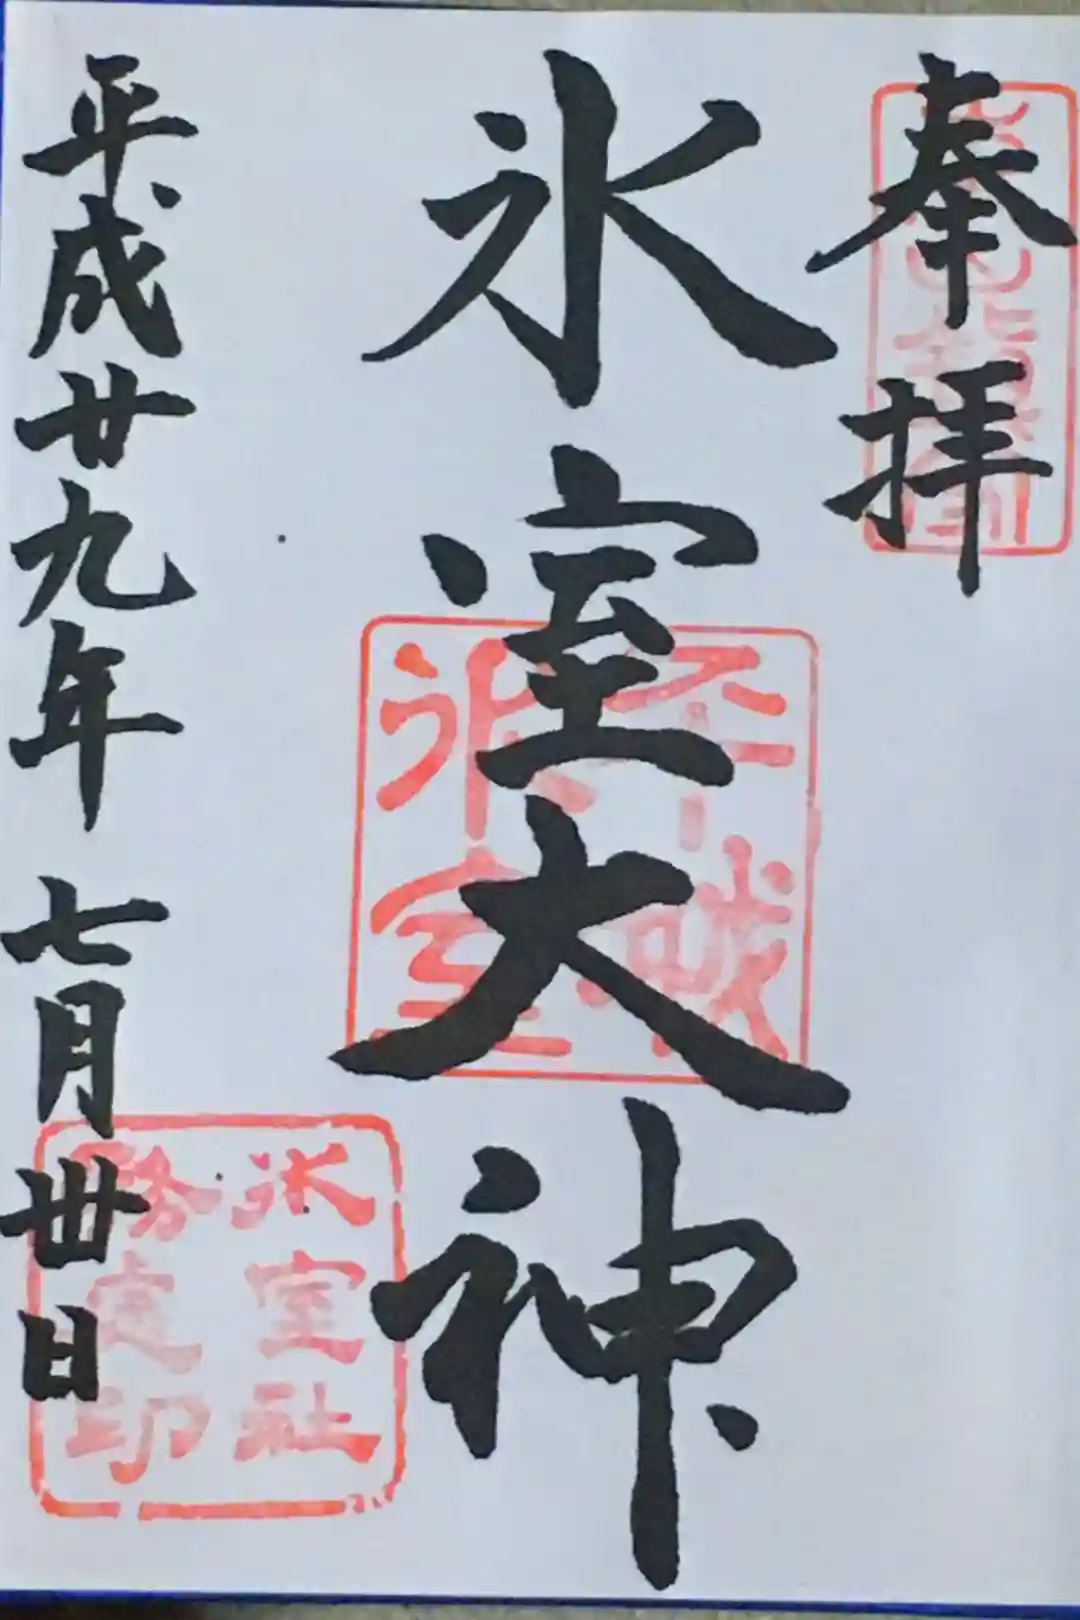 奉拝
氷室大神
平城
氷室
平成廿九年 七月卅日
氷室社
務處印